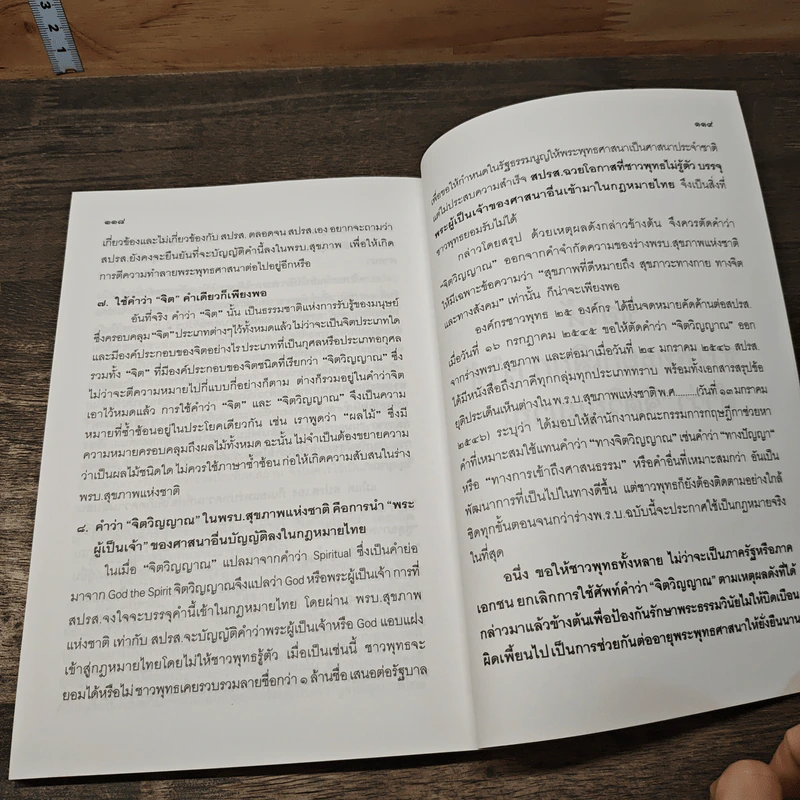 3
2
1
๑๑๘
เกี่ยวข้องและไม่เกี่ยวข้องกับ สปรส. ตลอดจน สปรส.เอง อยากจะถามว่า
สปรส.ยังคงจะยืนยันที่จะบัญญัติคำนี้ลงในพรบ.สุขภาพ เพื่อให้เกิด
การตีความทำลายพระพุทธศาสนาต่อไปอยู่อีกหรือ
๗. ใช้คำว่า “จิต” คำเดียวก็เพียงพอ
อันที่จริง คำว่า “จิต” นั้น เป็นธรรมชาติแห่งการรับรู้ของมนุษย์
ซึ่งครอบคลุม “จิต” ประเภทต่างๆไว้ทั้งหมดแล้ว ไม่ว่าจะเป็นจิตประเภทใด
และมีองค์ประกอบของจิตอย่างไร ประเภทที่เป็นกุศลหรือประเภทอกุศล
รวมทั้ง “จิต” ที่มีองค์ประกอบของจิตชนิดที่เรียกว่า “จิตวิญญาณ” ซึ่ง
ไม่ว่าจะตีความหมายไปกี่แบบกี่อย่างก็ตาม ต่างก็รวมอยู่ในคำว่าจิต
เอาไว้หมดแล้ว การใช้คำว่า “จิต” และ “จิตวิญญาณ” จึงเป็นความ
หมายที่ซ้ำซ้อนอยู่ในประโยคเดียวกัน เช่น เราพูดว่า “ผลไม้” ซึ่งมี
ความหมายครอบคลุมถึงผลไม้ทั้งหมด ฉะนั้น ไม่จำเป็นต้องขยายความ
ว่าเป็นผลไม้ชนิดใด ไม่ควรใช้ภาษาซ้ำซ้อน ก่อให้เกิดความสับสนในร่าง
พรบ.สุขภาพแห่งชาติ
๘. คำว่า “จิตวิญญาณ” ในพรบ.สุขภาพแห่งชาติ คือการนำ “พระ
ผู้เป็นเจ้า” ของศาสนาอื่นบัญญัติลงในกฎหมายไทย
ในเมื่อ “จิตวิญญาณ” แปลมาจากคำว่า Spiritual ซึ่งเป็นคำย่อ
มาจาก God the Spirit จิตวิญญาณจึงแปลว่า God หรือพระผู้เป็นเจ้า การที่
สปรส.จงใจจะบรรจุคำนี้เข้าในกฎหมายไทย โดยผ่าน พรบ.สุขภาพ
แห่งชาติ เท่ากับ สปรส.จะบัญญัติคำว่าพระผู้เป็นเจ้าหรือ God แอบแฝง
เข้าสู่กฎหมายไทยโดยไม่ให้ชาวพุทธรู้ตัว เมื่อเป็นเช่นนี้ ชาวพุทธจะ
ยอมได้หรือไม่ ชาวพุทธเคยรวบรวมลายชื่อกว่า ๑ ล้านชื่อ เสนอต่อรัฐบาล
๑๑๙
เพื่อขอให้กำหนดในรัฐธรรมนูญให้พระพุทธศาสนาเป็นศาสนาประจำชาติ
แต่ไม่ประสบความสำเร็จ สปรส.ฉวยโอกาสที่ชาวพุทธไม่รู้ตัว บรรจุ
พระผู้เป็นเจ้าของศาสนาอื่นเข้ามาในกฎหมายไทย จึงเป็นสิ่งที่
ชาวพุทธยอมรับไม่ได้
กล่าวโดยสรุป ด้วยเหตุผลดังกล่าวข้างต้น จึงควรตัดคำว่า
“จิตวิญญาณ” ออกจากคำจำกัดความของร่างพรบ.สุขภาพแห่งชาติ
ให้มีเฉพาะข้อความว่า “สุขภาพที่ดีหมายถึง สุขภาวะทางกาย ทางจิต
และทางสังคม” เท่านั้น ก็น่าจะเพียงพอ
องค์กรชาวพุทธ ๒๕ องค์กร ได้ยื่นจดหมายคัดค้านต่อสปรส.
เมื่อวันที่ ๑๖ กรกฎาคม ๒๕๔๕ ขอให้ตัดคำว่า “จิตวิญญาณ” ออก
จากร่างพรบ.สุขภาพ และต่อมาเมื่อวันที่ ๒๔ มกราคม ๒๕๔๖ สปรส.
ได้มีหนังสือถึงภาคีทุกกลุ่มทุกประเภททราบ พร้อมทั้งเอกสารสรุปข้อ
ยุติประเด็นเห็นต่างใน พ.ร.บ.สุขภาพแห่งชาติ พ.ศ.........(วันที่ ๑๓ มกราคม
๒๕๔๖) ระบุว่า ได้มอบให้สำนักงานคณะกรรมการกฤษฎีกาช่วยหา
คำที่เหมาะสมใช้แทนคำว่า “ทางจิตวิญญาณ” เช่นคำว่า “ทางปัญญา”
หรือ “ทางการเข้าถึงศาสนธรรม” หรือคำอื่นที่เหมาะสมกว่า อันเป็น
พัฒนาการที่เป็นไปในทางดีขึ้น แต่ชาวพุทธก็ยังต้องติดตามอย่างใกล้
ชิดทุกขั้นตอนจนกว่าร่างพ.ร.บ.ฉบับนี้จะประกาศใช้เป็นกฎหมายจริง
ในที่สุด
อนึ่ง ขอให้ชาวพุทธทั้งหลาย ไม่ว่าจะเป็นภาครัฐหรือภาค
เอกชน ยกเลิกการใช้ศัพท์คำว่า “จิตวิญญาณ” ตามเหตุผลดังที่ได้
กล่าวมาแล้วข้างต้นเพื่อป้องกันรักษาพระธรรมวินัยไม่ให้บิดเบือน
ผิดเพี้ยนไป เป็นการช่วยกันต่ออายุพระพุทธศาสนาให้ยั่งยืนนาน